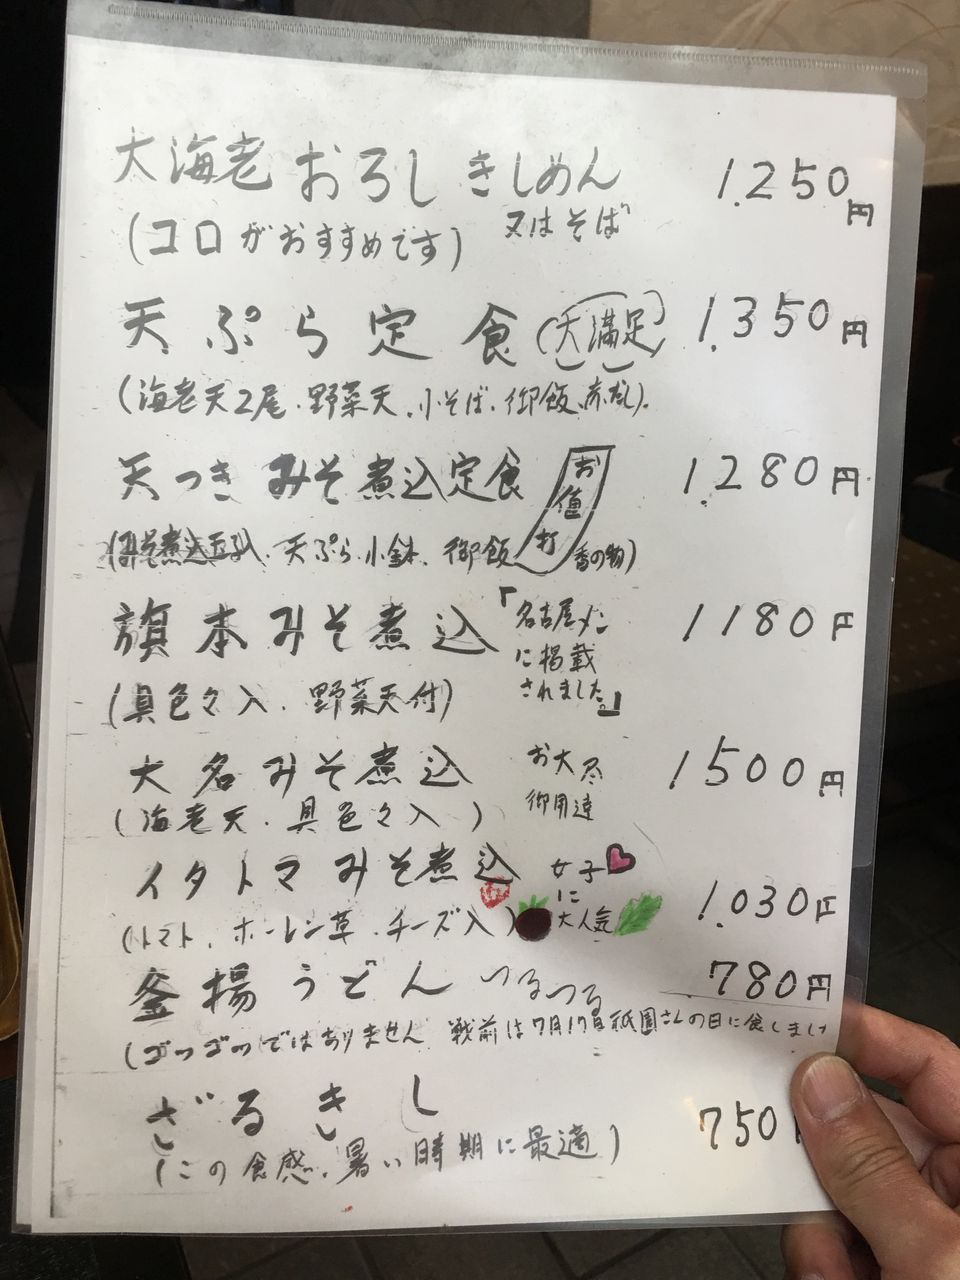 大海老おろしきしめん 1.250円
(コロがおすすめです) 又はそば
天ぷら定食(大満足) 1.350円
(海老天2尾.野菜天.小そば.御飯.赤だし).
天つきみそ煮込定食 お値打 1.280円
(みそ煮込玉子入.天ぷら.小鉢.御飯 香の物)
旗本みそ煮込 「名古屋メシに掲載されました。」 1180円
(具色々入.野菜天付)
大名みそ煮込 お大尽御用達 1500円
(海老天.具色々入)
イタトマみそ煮込 女子に大人気 1.030円
(トマト.ホーレン草.チーズ入)
釜揚うどん つるつる 780円
(ゴツゴツではありません 戦前は7月17日祇園さんの日に食しまし
ざるきし 750
(この食感.暑い時期に最適)